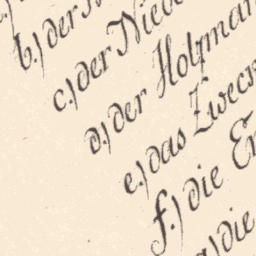 b.) der
c.) der Niede
d.) der Holzman
e.) das Zweck
f.) die Er
g.) die